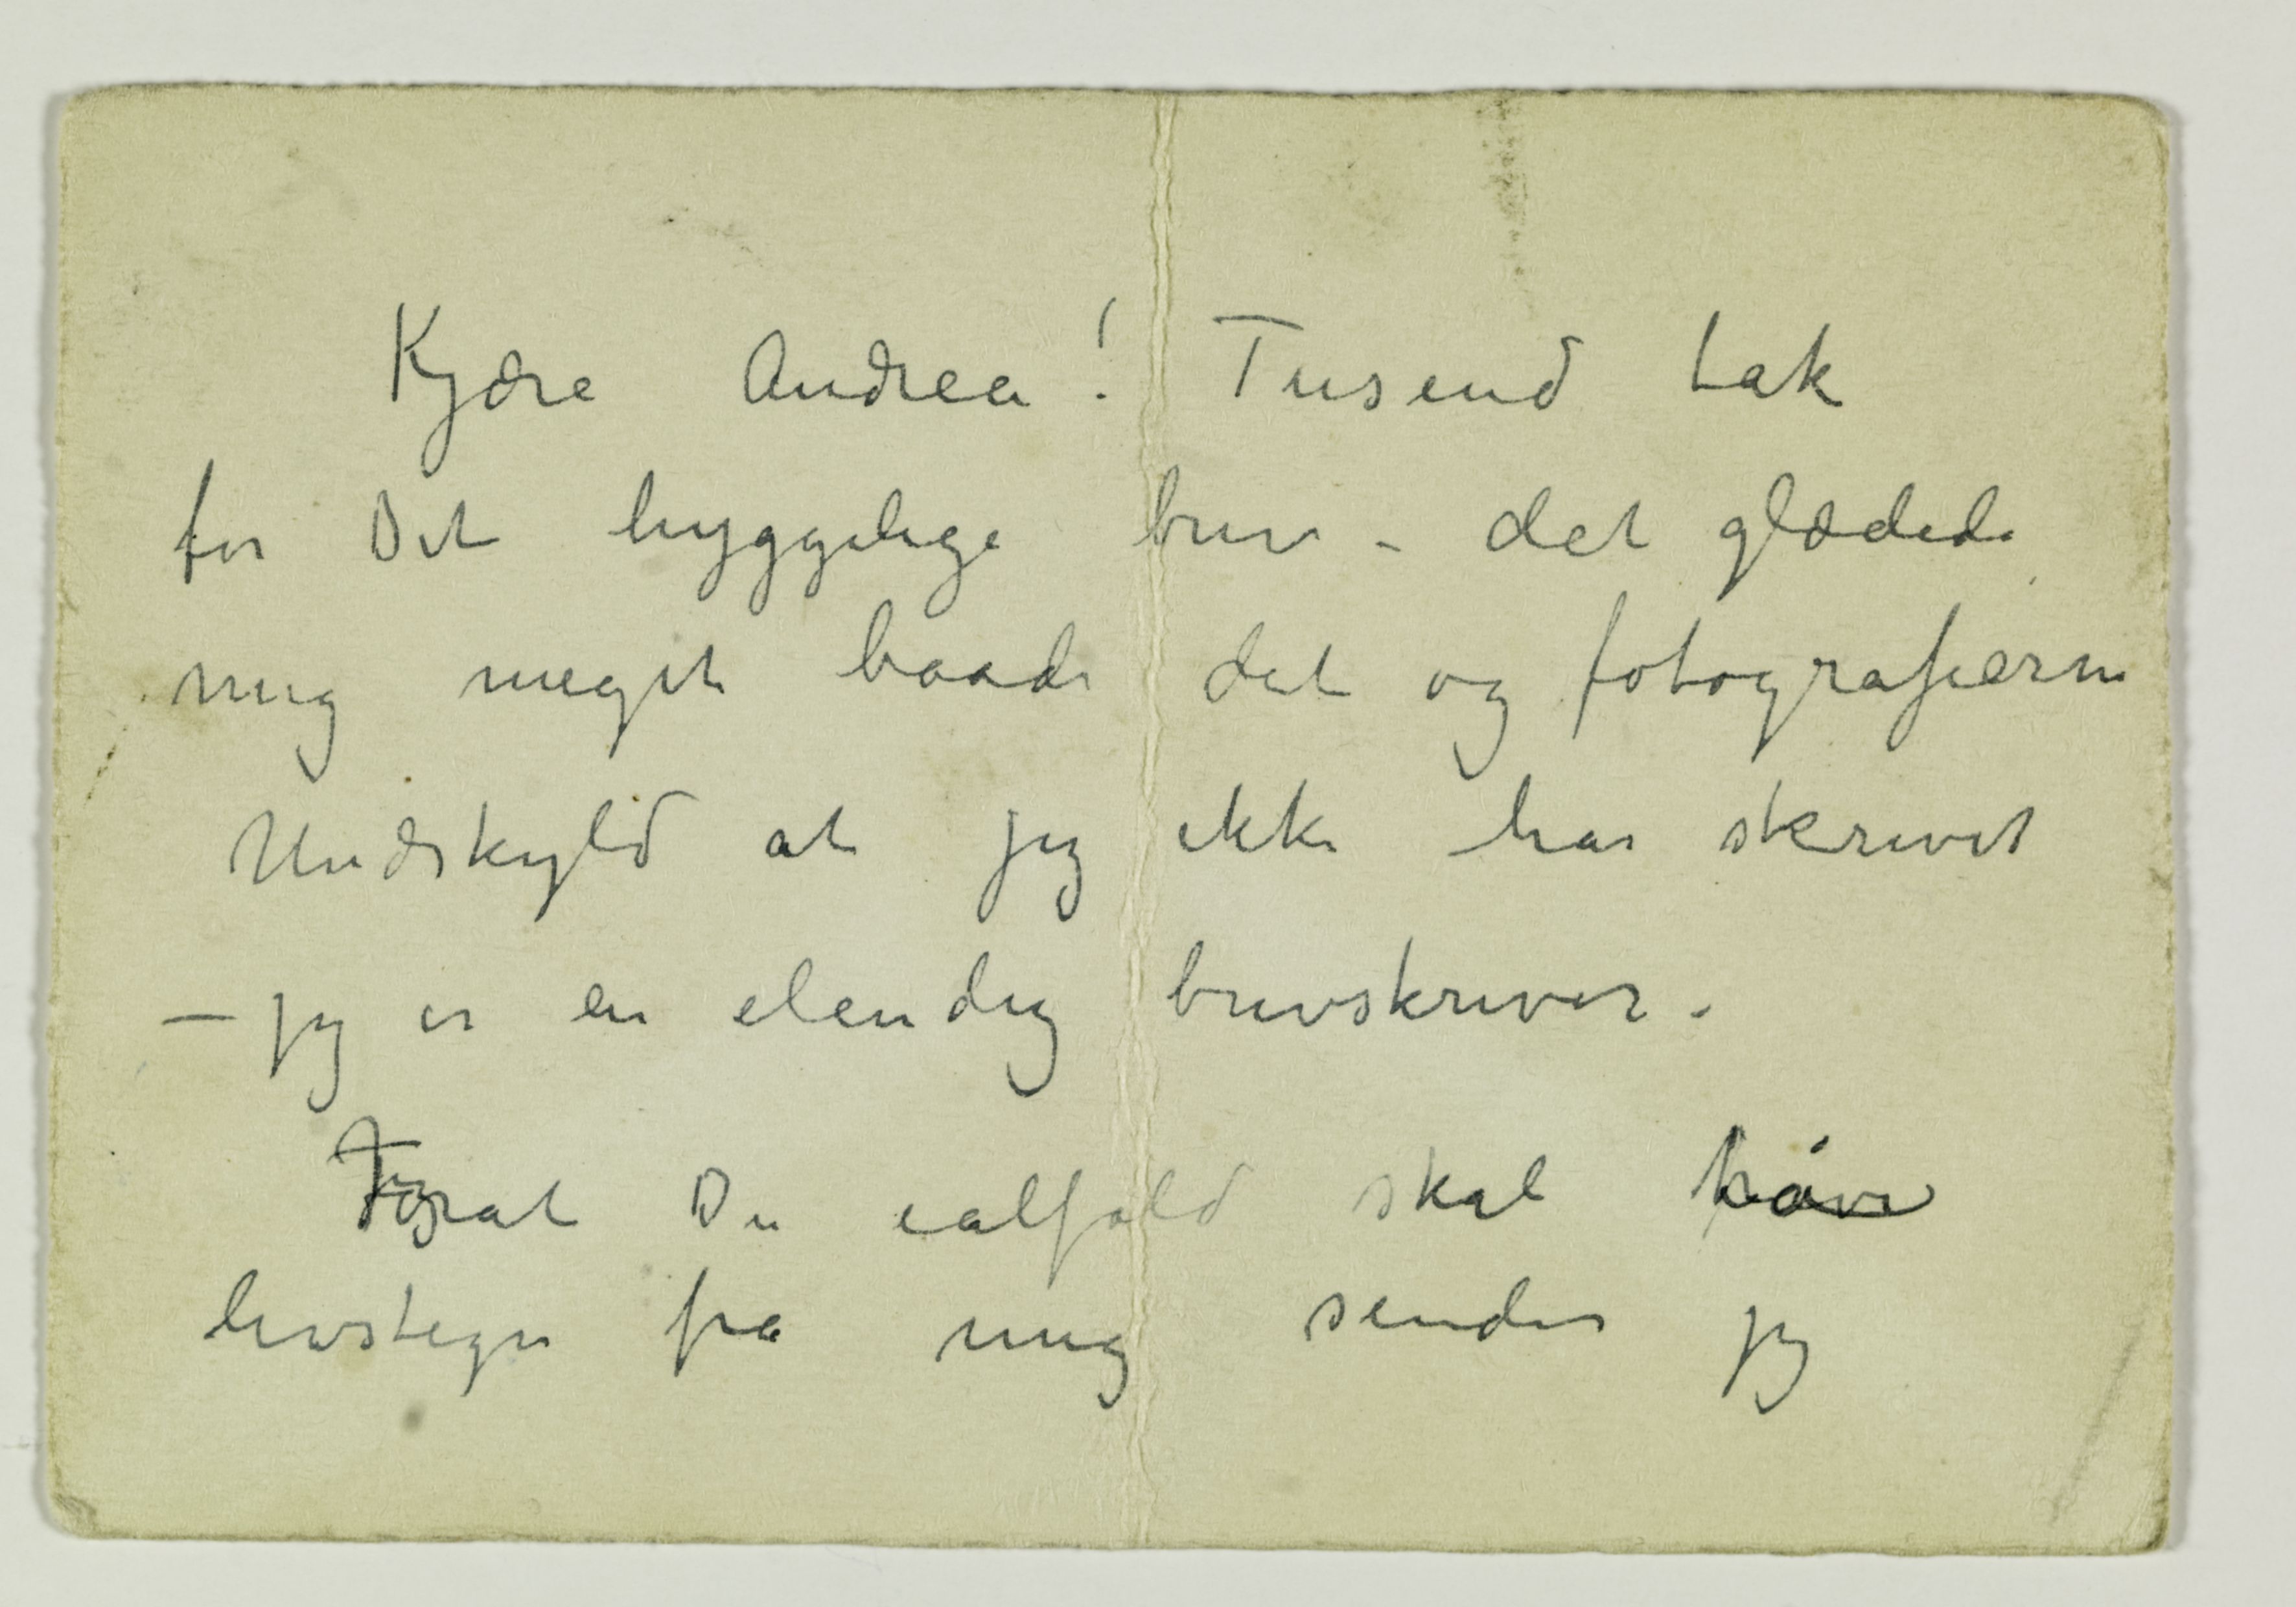 Kjære Andrea! Tusend tak
for Dit hyggelige brev – det glædede
mig meget baade det og fotografierne
Undskyld at jeg ikke har skrevet
– jeg er en elendig brevskriver –
Forat Du ialfald skal have
livstegn fra mig sender jeg